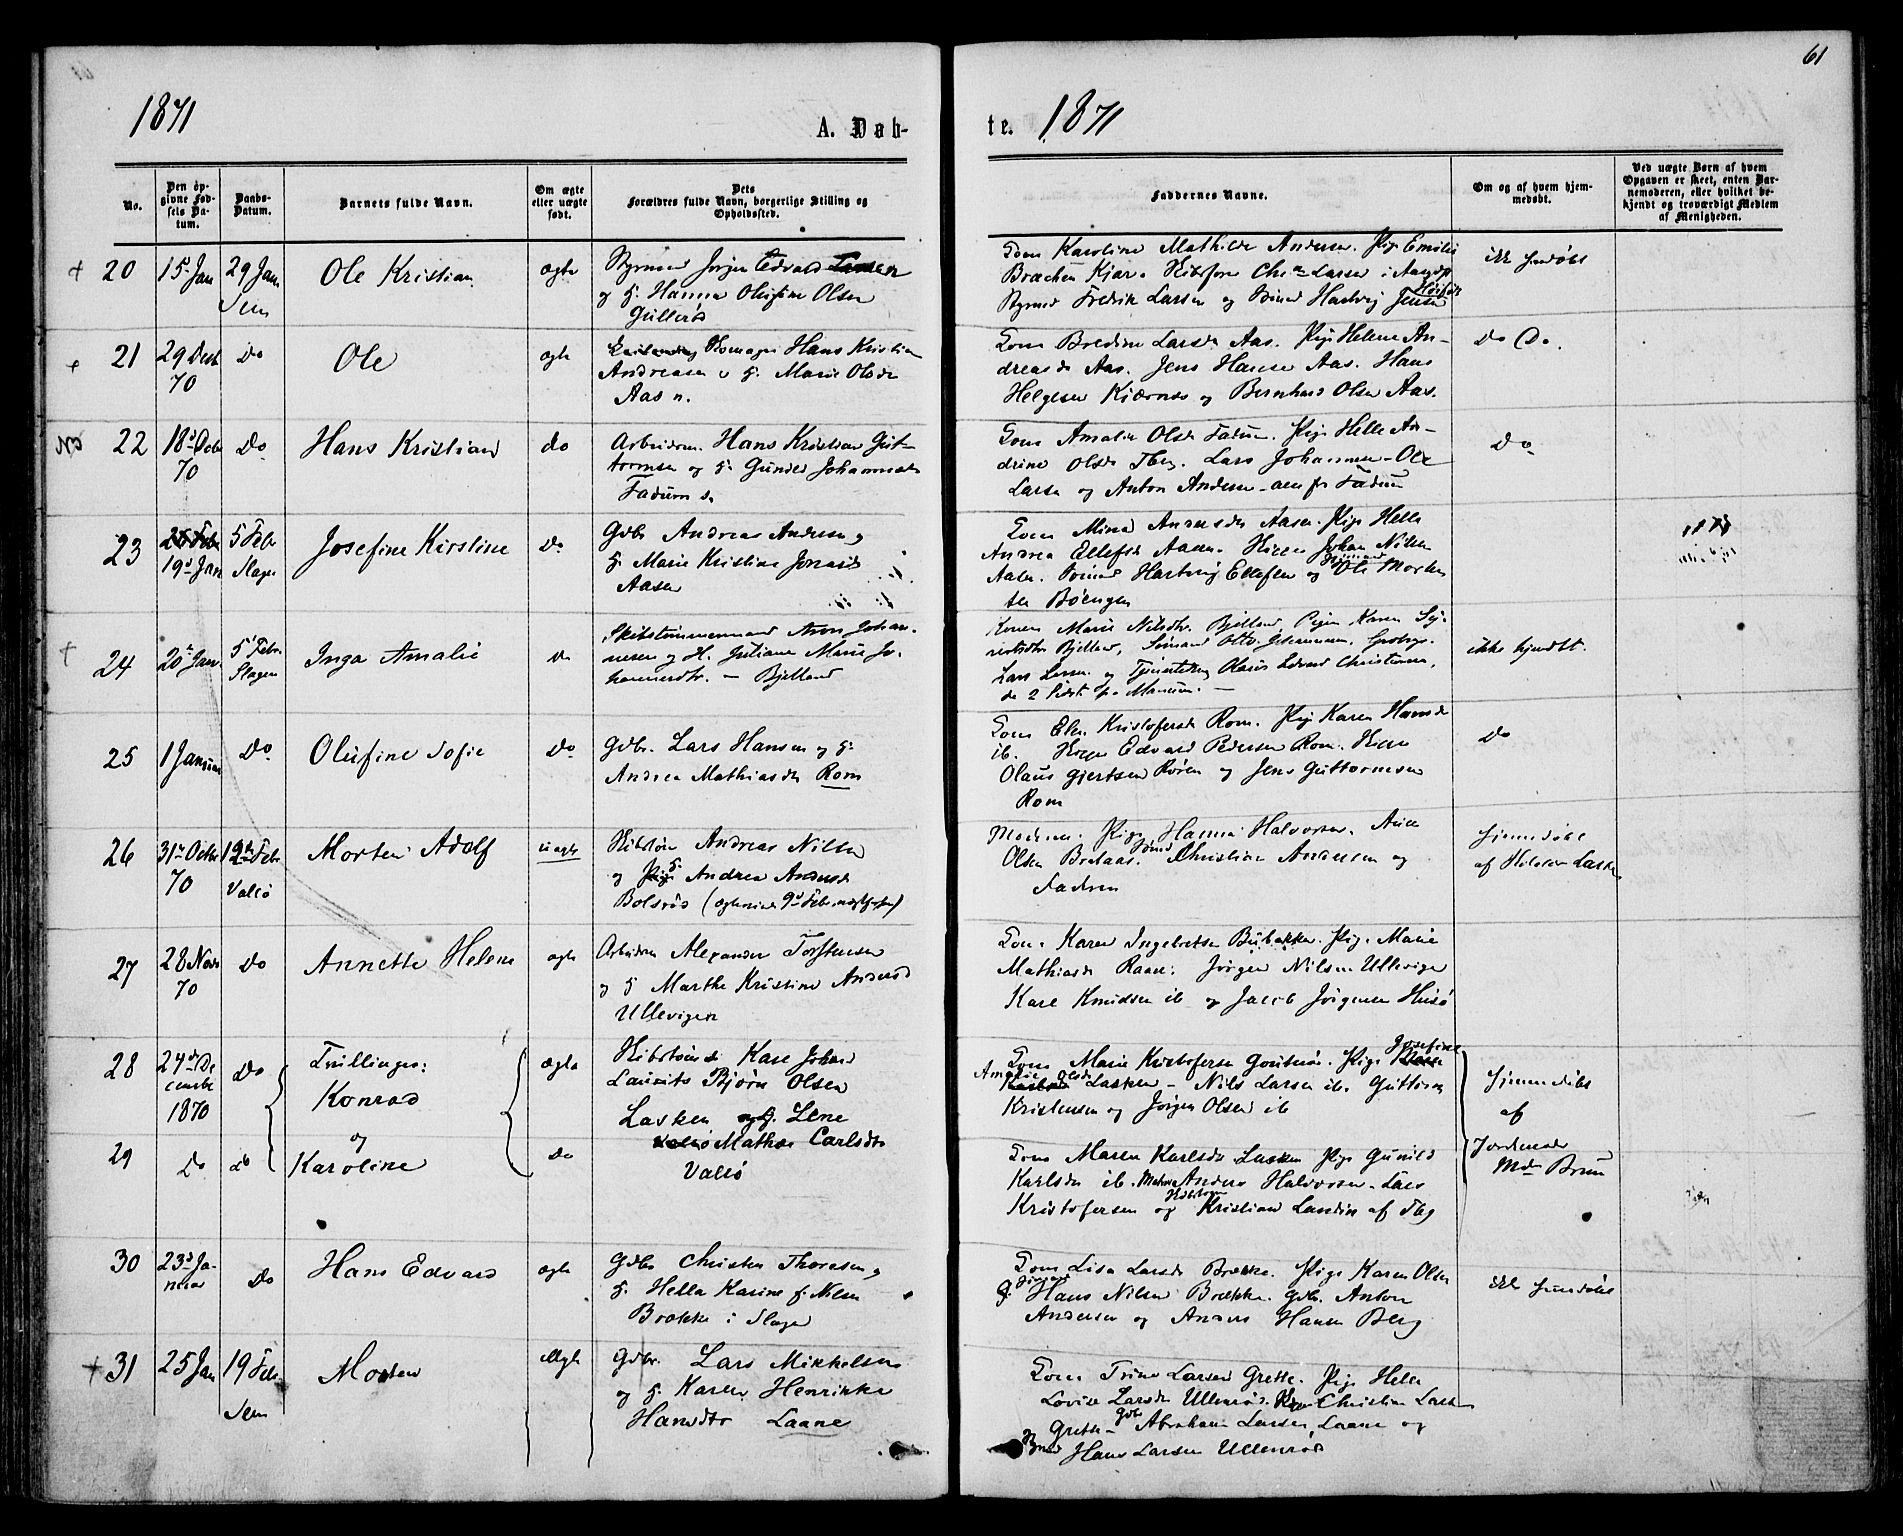 61
1871
A. Døb-
te. 1871
No.
Den op-
givne Fød-
sels Da-
tum.
Daabs-
Datum.
Barnets fulde Navn.
Om ægte
eller uægte
født.
Dets
Forældres fulde Navn, borgerlige Stilling og
Opholdssted.
Faddernes Navne.
Om og af hvem hjem-
medøbt.
Ved uægte Børn af hvem
Opgaven er skeet, enten Bar-
nemoderen, eller hvilket be-
kjendt og troværdigt Medlem
af Menigheden.
20
15 Jan
29 Jan
Sem
Ole Kristian
ægte
Styrmand Jørgen Edvard
og H. Hanna Olufine Olsen
Gullerød
Kone Karoline Mathilde Andersen. Pige Emilie
Larsen
Styrmd Fredrik Larsen og Hartvig Jensen
21
29 Decb
70
Do
Ole
ægte
Hans Kristian
Andreasen og H. Marie Olsdr
Aas n.
Kone Bredine Larsdr Aas. Pige Helene An-
dreasdr Aas. Jens Hansen Aas. Hans
Helgesen Kjærnes og Bernhard Olsen Aas.
Do Do.
22
18 Octbr
70
Do
Hans Kristian
do
Arbeidsm. Hans Kristian Gut-
tormsen og H. Gunild Johannesdr
Fadum s.
Kone Amalie Olsdr Fadum. Pige Helle An-
drine Olsdr Tbg. Lars Johannesen. Ole
Larsen og Anton Andersen alle fr Fadum
Do
23
19 Jan
5 Feb
Slagen
Josefine Kirstine
Do
Gdbr Andreas Andersen og
H. Marie Kristine Jonasdr
Aasen
Kone Mina Andersdr Aasen. Pige Helle
Andrea Ellefsdr Aasen. Johan Nilsen
Aasen. Hartvig Ellefsen og Ole Morten
sen Bøengen
24
20 Jan
5 Febr.
Slagen
Inga Amalie
do
Skibstømmermand Aron Johan-
nesen og H. Juliane Marie Jo-
hannesdtr. – Bjelland
Konen Marie Nilsdtr. Bjelland, Pigen Karen
Bjelland, Sømand Otto
Lars Larsen og Olaus Edvard Christensen,
de 2 sidste fra Manum. –
ikke hjemdøbt.
25
1 Januar
Do
Olufine Sofie
Do
Gdbr. Lars Hansen og H.
Andrea Mathiasdr Rom
Kone Elen Kristofersdr Rom. Pige Karen Hansdr
ib. Edvard Pedersen Rom.
Olaus Gjertsen Røren og Jens Guttormsen
Rom
Do
26
31 Octbr
70
12 Febr
Vallø
Morten Adolf
uægte
Andreas Nilsen
og Pige Andrea Andersdr
Bolsrød
Moderen. Pige Hanna Halvorsen. Ane
Olsen Christian Andersen og
Faderen
hjemmedøbt
27
28 Nov
70
Do
Annette Helene
ægte
Arbeidsm Alexander Torstensen
og H. Marthe Kristine Andersdr
Ullevigen
Kone Karen Ingebretsen Bubakken. Pige Marie
Mathiasdr Raan. Jørgen Nilsen Ullevigen
Kare Knudsen ib og Jacob Jørgensen Husø
28
24 De
cembr
1870
Do
Tvillinger:
Konrad
og
ægte
Kare Johan
Laurits Bjørn Olsen
Lasken og H. Lene
Mathea Carlsdtr
Vallø
Josefine
Kone Marie Kristofersen Pige
Amalie Olsdr
Lasken – Nils Larsen ib. Guttorm
Kristensen og Jørgen Olsen ib
hjemmedøbt
af
Jordemoder
Md Bruu
29
Do
do
Karoline
Do
Kone Maren Karlsdr Lasken Pige Gunild
Karlsdr ib. Anders Halvorsen. Lars
Kristofersen og Kristian Lundin af Tbg
30
23 Ja-
nuar
Do
Hans Edvard
ægte
Gdbr Christen Thoresen og
H. Hella Karine f. Nilsen
Brække i Slagen
Kone Lisa Larsdr Brække. Pige Karen Olsen
Hans Nilsen Brække. Gdbr. Anton
Andersen og Anders Hansen Berg
ikke hjemdøbt
31
25 Jan
19 Feb
Sem
Morten
ægte
Gdbr. Lars Mikkelsen
og H. Karen Henrikke
Hansdtr Laane
Kone Trine Larsen Grette. Pige Helle
Lovise Larsdr Ullenrød. Christian Larsen
Grette – Gdbr Abraham Larsen, Laane og
Hans Larsen Ullenrød